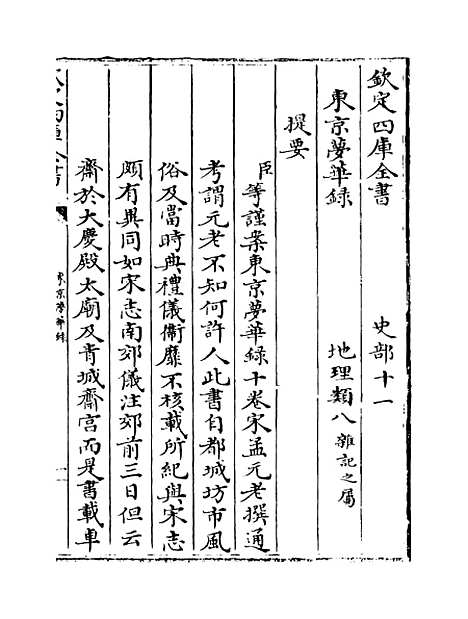 欽定四庫全書　史部十一
東京夢華録　地理類八雜記之屬
提要
臣等謹案東京夢華録十卷宋孟元老撰通
考謂元老不知何許人此書自都城坊市風
俗及當時典禮儀衛靡不核載所紀與宋志
頗有異同如宋志南郊儀注郊前三日但云
齋於大慶殿太廟及青城齋宫而是書載車
東京夢華録